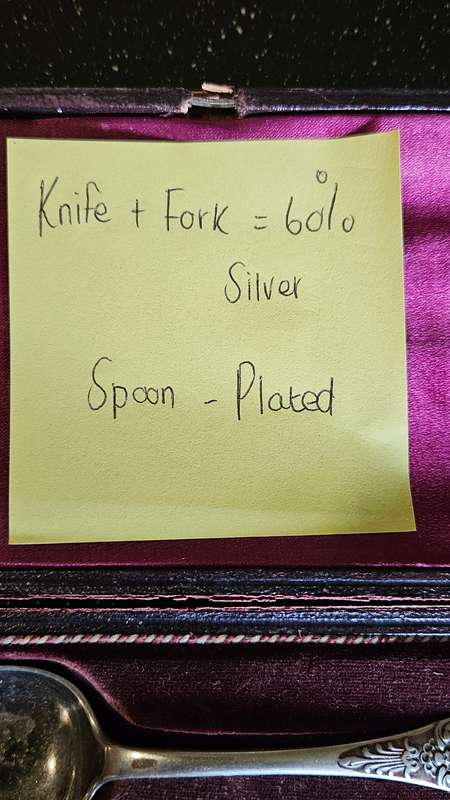 Knife + Fork = 60%
Silver
Spoon - Plated